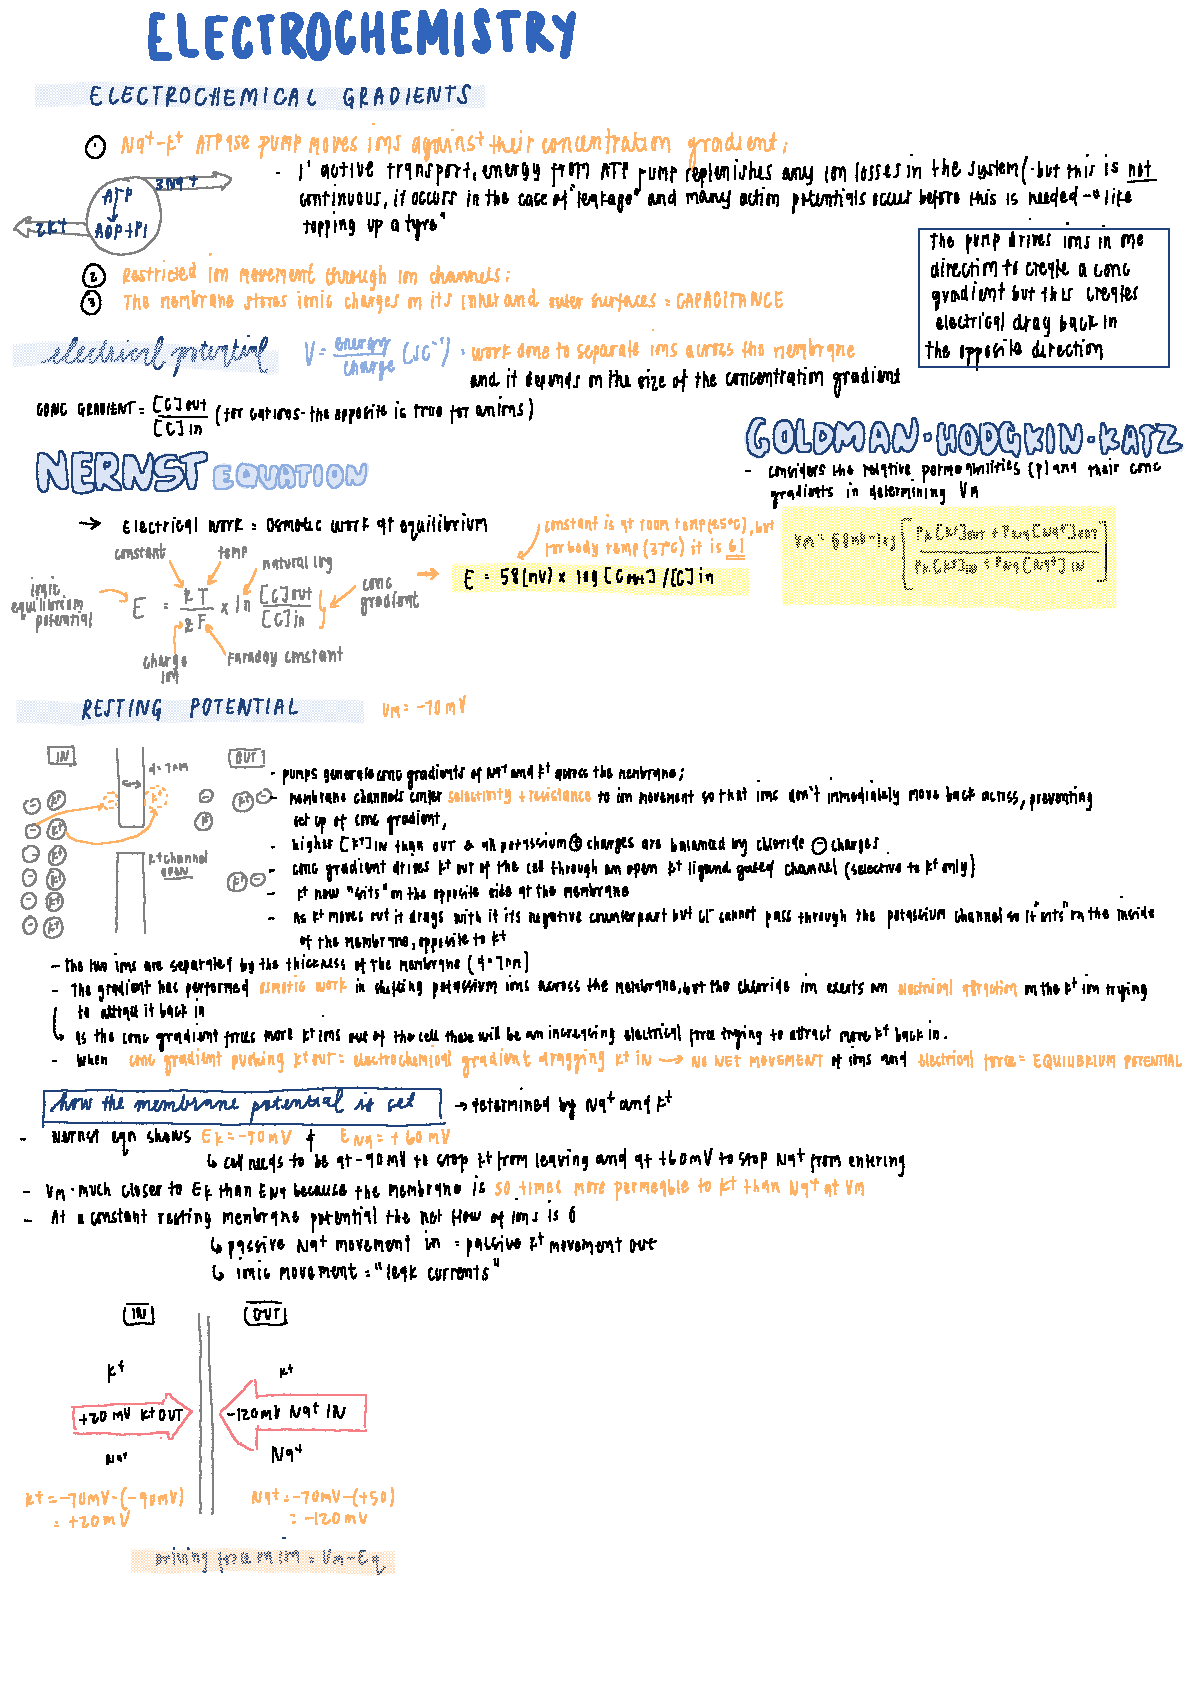 ELECTROCHEMISTRY
ELECTROCHEMICAL GRADIENTS
1 Na+-K+ ATPase PUMP moves ions against their concentration gradient;
- 1° active transport, energy from ATP pump replenishes any ion losses in the system (-but this is not
continuous, it occurs in the case of "leakage" and many action potentials occur before this is needed - "like
topping up a tyre"
3Na+
ATP
ADP+Pi
2K+
2 Restricted ion movement through ion channels;
3 The membrane stores ionic charges on its inner and outer surfaces = CAPACITANCE
The pump drives ions in one
direction to create a conc
gradient but this creates
electrical drag back in
the opposite direction
electrical potential V = energy/charge (JC⁻¹) · work done to separate ions across the membrane
and it depends on the size of the concentration gradient
CONC GRADIENT = [C]out/[C]in (for cations - the opposite is true for anions)
NERNST EQUATION
→ Electrical work = osmotic work at equilibrium
constant
temp
natural log
ionic equilibrium potential
E = RT/zF x ln [C]out/[C]in
conc gradient
charge ion
Faraday constant
constant is at room temp (25°C), but
for body temp (37°C) it is 61
→ E = 58(mV) x log [Cout] / [C]in
GOLDMAN-HODGKIN-KATZ
- considers the relative permeabilities (P) and their conc
gradients in determining Vm
Vm = 58mV·log [PK[K+]OUT + PNa[Na+]OUT / PK[K+]IN + PNa[Na+]IN]
RESTING POTENTIAL Vm = -70mV
IN
OUT
d=7nm
K+ channel
open
- pumps generate conc gradients of Na+ and K+ across the membrane;
- membrane channels confer selectivity + resistance to ion movement so that ions don't immediately move back across, preventing
set up of conc gradient,
- higher [K+]IN than OUT & all potassium + charges are balanced by chloride - charges.
- conc gradient drives K+ out of the cell through an open K+ ligand gated channel (selective to K+ only)
- K+ now "sits" on the opposite side at the membrane
- As K+ moves out it drags with it its negative counterpart but Cl- cannot pass through the potassium channel so it "sits" on the inside
of the membrane, opposite to K+
- The two ions are separated by the thickness of the membrane (d=7nm)
- The gradient has performed osmotic work in shifting potassium ions across the membrane, but the chloride ion exerts an electrical attraction on the K+ ion trying
to attract it back in
↳ as the conc gradient forces more K+ ions out of the cell there will be an increasing electrical force trying to attract more K+ back in.
- When conc gradient pushing K+ OUT = electrochemical gradient dragging K+ IN → NO NET MOVEMENT of ions and electrical force = EQUILIBRIUM POTENTIAL
how the membrane potential is set → determined by Na+ and K+
- Nernst eqn shows EK = -90mV & ENa = +60mV
↳ cell needs to be at -90mV to stop K+ from leaving and at +60mV to stop Na+ from entering
- Vm - much closer to EK than ENa because the membrane is 50 times more permeable to K+ than Na+ at Vm
- At a constant resting membrane potential the net flow of ions is 0
↳ passive Na+ movement in = passive K+ movement out
↳ ionic movement = "leak currents"
IN
OUT
K+
K+
+20mV K+ OUT
-120mV Na+ IN
Na+
Na+
K+ = -70mV-(-90mV)
= +20mV
Na+ = -70mV-(+50)
= -120mV
Driving force on ion = Vm-Eq